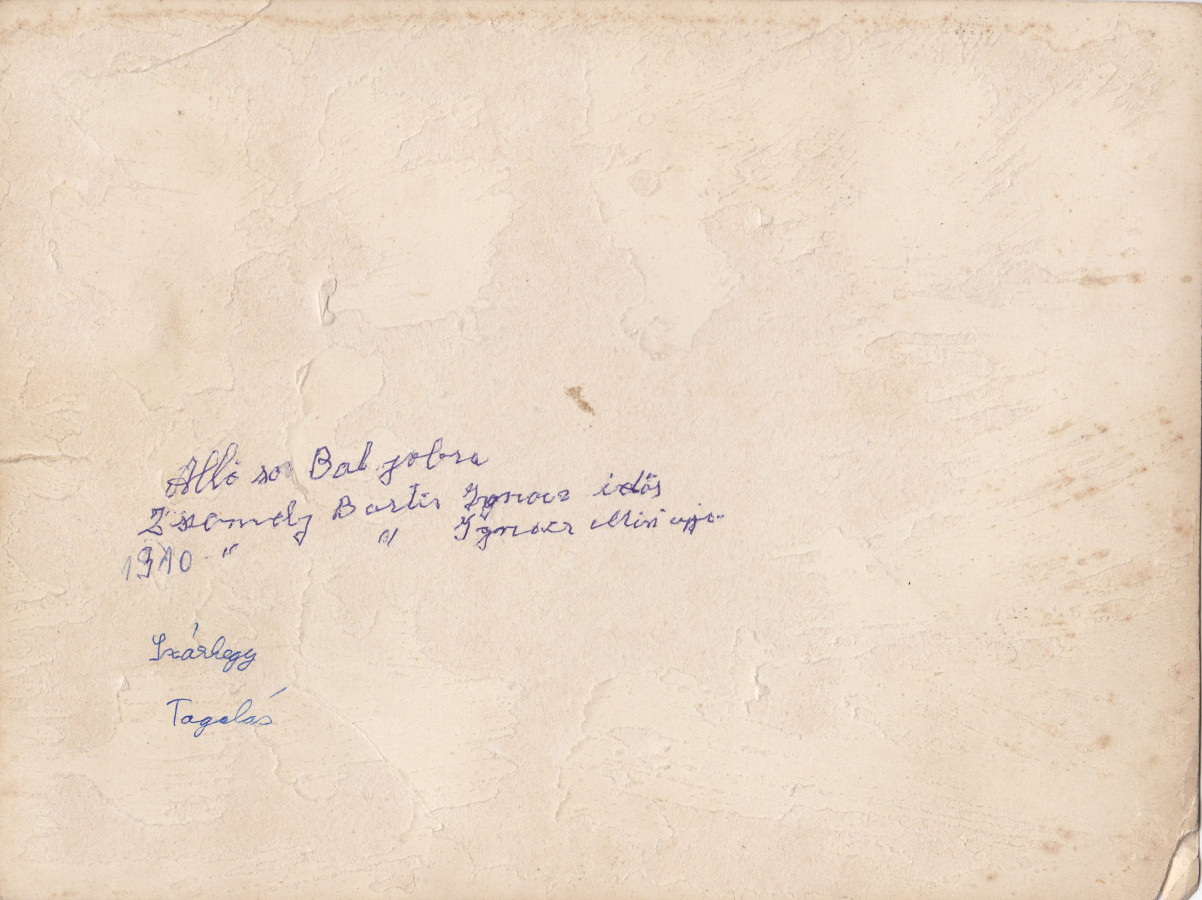 Álló sor Bal jobra
2 szemely Bartis Ignacz idős
1910 " " Ignacz Misi apja
Szárhegy
Tagolás